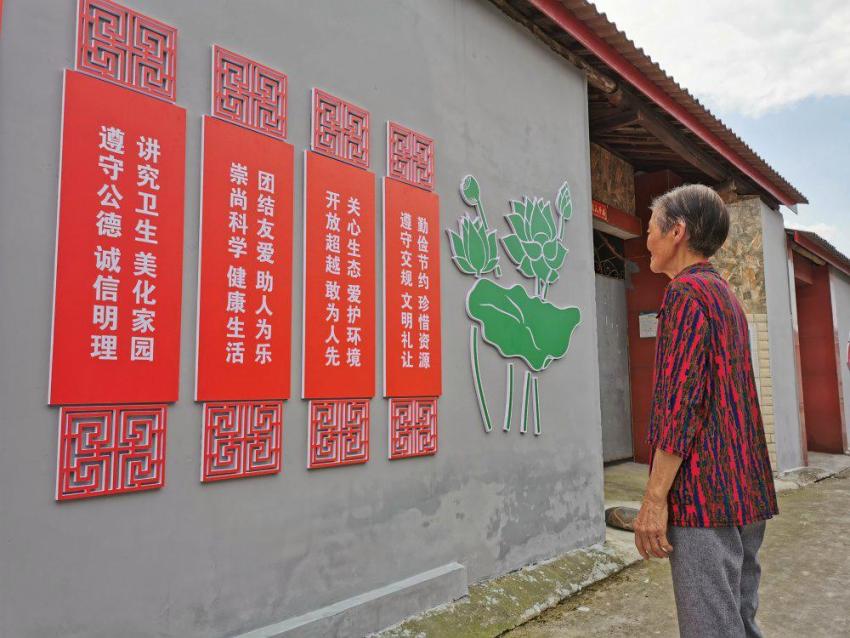 勤俭节约 珍惜资源
遵守交规 文明礼让
关心生态 爱护环境
开放超越 敢为人先
团结友爱 助人为乐
崇尚科学 健康生活
讲究卫生 美化家园
遵守公德 诚信明理